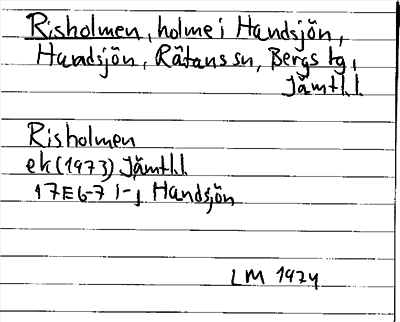 Risholmen, holme i Handsjön,
Handsjön, Rätans sn, Bergs tg,
Jämtl.l.
Risholmen
ek (1973) Jämtl.l.
17E 6-7 i-j Handsjön
LM 1974